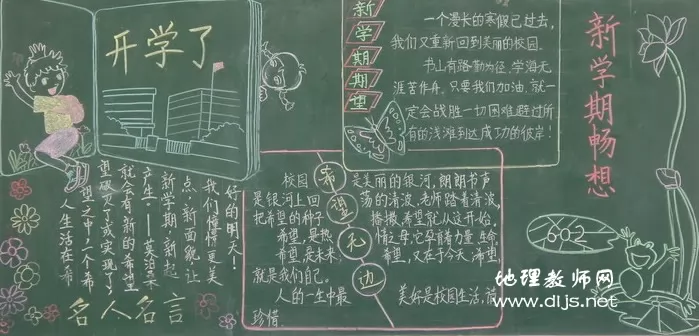 开学了
新学期期望
一个漫长的寒假已过去,
我们又重新回到美丽的校园。
书山有路勤为径,学海无
涯苦作舟。只要我们加油,就一
定会战胜一切困难避过所
有的浅滩到达成功的彼岸!
新学期畅想
602
人生活在希
望之中,一个希
望破灭了或实现了,
就会有新的希望
产生——莫泊桑
新学期,新起
点,新面貌让
我们憧憬更美
好的明天!
名人名言
希望无边
校园是美丽的银河,朗朗书声
是银河上回荡的清波,老师踏着清波,
把希望的种子播撒,希望就从这开始。
希望,是热情之母,它孕育着力量,生命
希望,是未来;希望,又在于今天,希望
就是我们自己。
人的一生中最美好是校园生活,请
珍惜.
地理教师网
www.dljs.net